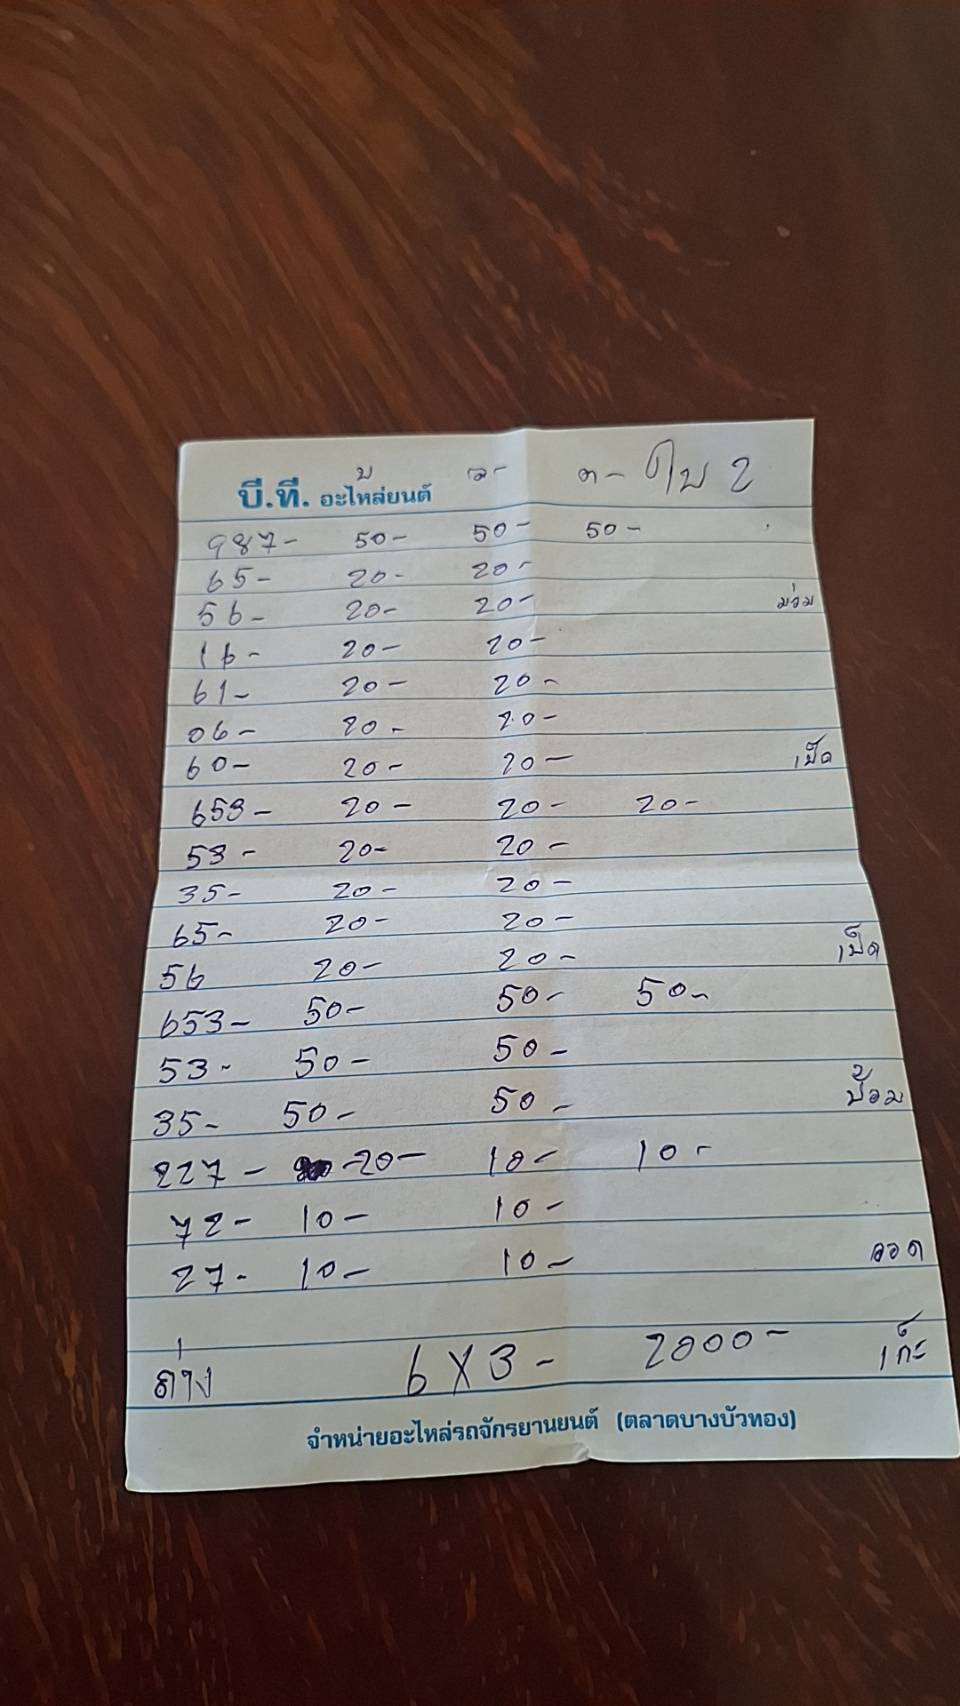 บ ล- ต- ใบ 2
บี.ที. อะไหล่ยนต์
987- 50- 50- 50-
65- 20- 20-
56- 20- 20- ม่อม
16- 20- 20-
61- 20- 20-
06- 20- 20-
60- 20- 20- เป็ด
653- 20- 20- 20-
53- 20- 20-
35- 20- 20-
65- 20- 20-
56 20- 20- เป็ด
653- 50- 50- 50-
53- 50- 50-
35- 50- 50- ป้อม
227- -20- 10- 10-
72- 10- 10-
27- 10- 10- ออด
ล่าง 6X3- 2000- เก๊ะ
จำหน่ายอะไหล่รถจักรยานยนต์ (ตลาดบางบัวทอง)